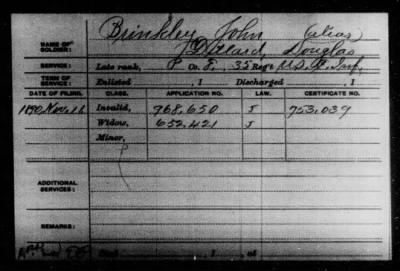 Brinkley, John (alias)
NAME OF SOLDIER: Dillard Douglas
SERVICE: Late rank, P Co. F, 35 Reg't U.S.C. Inf.
TERM OF SERVICE: Enlisted , 1 Discharged , 1
DATE OF FILING. CLASS. APPLICATION NO. LAW. CERTIFICATE NO.
1890 Nov. 16 Invalid, 968,650 J 753,039
Widow, 652,421 J
Minor,
ADDITIONAL SERVICES:
REMARKS:
, 1 , at